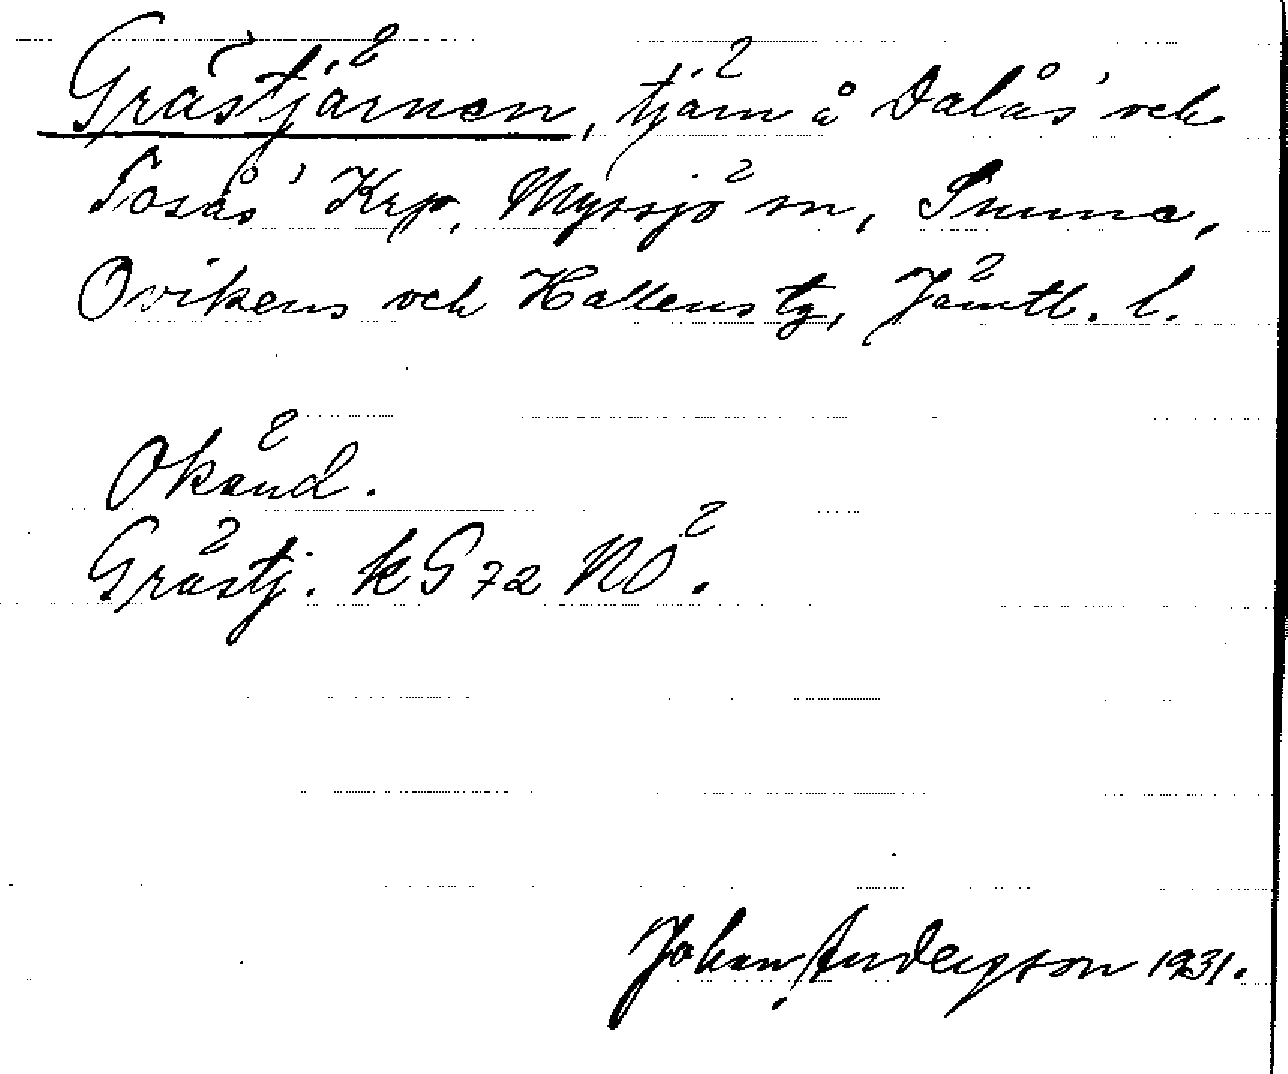 Grästjärnen, tjärn å Dalås' och
Tosås' Krp, Myssjö sn, Sunne,
Ovikens och Hallens tg, Jämtl. l.
Okänd.
Grästj. kG 72 NÖ.
Johan Anderson 1931.